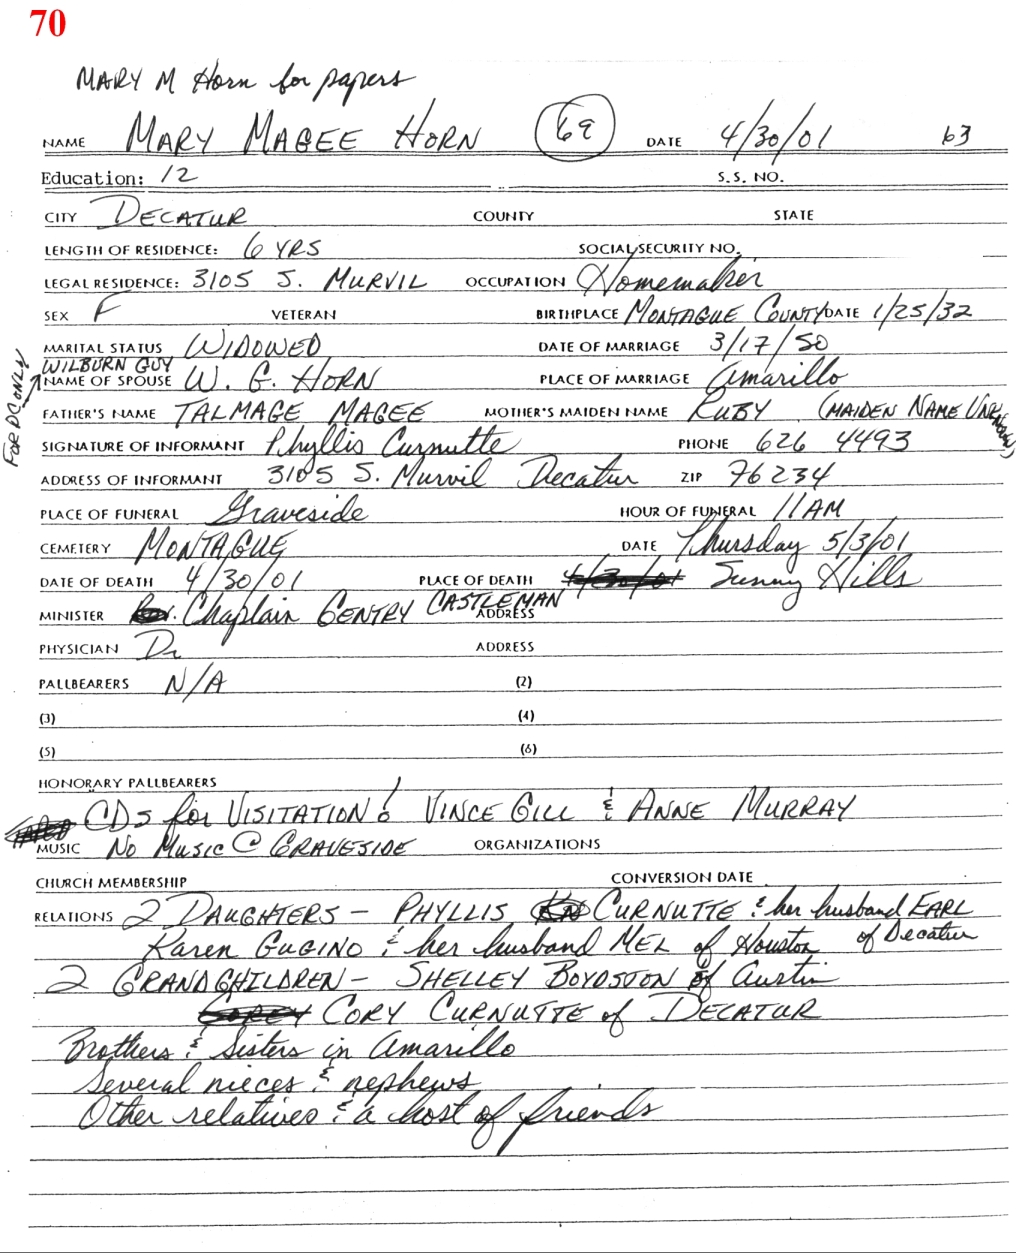 70
MARY M Horn for papers
NAME MARY MAGEE HORN 69 DATE 4/30/01 63
Education: 12 S.S. NO.
CITY DECATUR COUNTY STATE
LENGTH OF RESIDENCE: 6 YRS SOCIAL SECURITY NO.
LEGAL RESIDENCE: 3105 S. MURVIL OCCUPATION Homemaker
SEX F VETERAN BIRTHPLACE MONTAGUE COUNTY DATE 1/25/32
MARITAL STATUS WIDOWED DATE OF MARRIAGE 3/17/50
WILBURN GUY
FOR DC ONLY
NAME OF SPOUSE W. G. HORN PLACE OF MARRIAGE Amarillo
FATHER'S NAME TALMAGE MAGEE MOTHER'S MAIDEN NAME RUBY (MAIDEN NAME UNKNOWN)
SIGNATURE OF INFORMANT Phyllis Curnutte PHONE 626 4493
ADDRESS OF INFORMANT 3105 S. Murvil Decatur ZIP 76234
PLACE OF FUNERAL Graveside HOUR OF FUNERAL 11AM
CEMETERY MONTAGUE DATE Thursday 5/3/01
DATE OF DEATH 4/30/01 PLACE OF DEATH 4/30/01 Sunny Hills
MINISTER Chaplain GENTRY CASTLEMAN ADDRESS
PHYSICIAN Dr ADDRESS
PALLBEARERS N/A (2)
(3) (4)
(5) (6)
HONORARY PALLBEARERS
CDs for VISITATION! VINCE GILL & ANNE MURRAY
MUSIC No Music @ GRAVESIDE ORGANIZATIONS
CHURCH MEMBERSHIP CONVERSION DATE
RELATIONS 2 DAUGHTERS - PHYLLIS CURNUTTE & her husband EARL of Decatur
Karen GUGINO & her husband MEL of Houston
2 GRANDCHILDREN - SHELLEY BOYDSTON of Austin
COREY CORY CURNUTTE of DECATUR
Brothers & Sisters in Amarillo
Several nieces & nephews
Other relatives & a host of friends